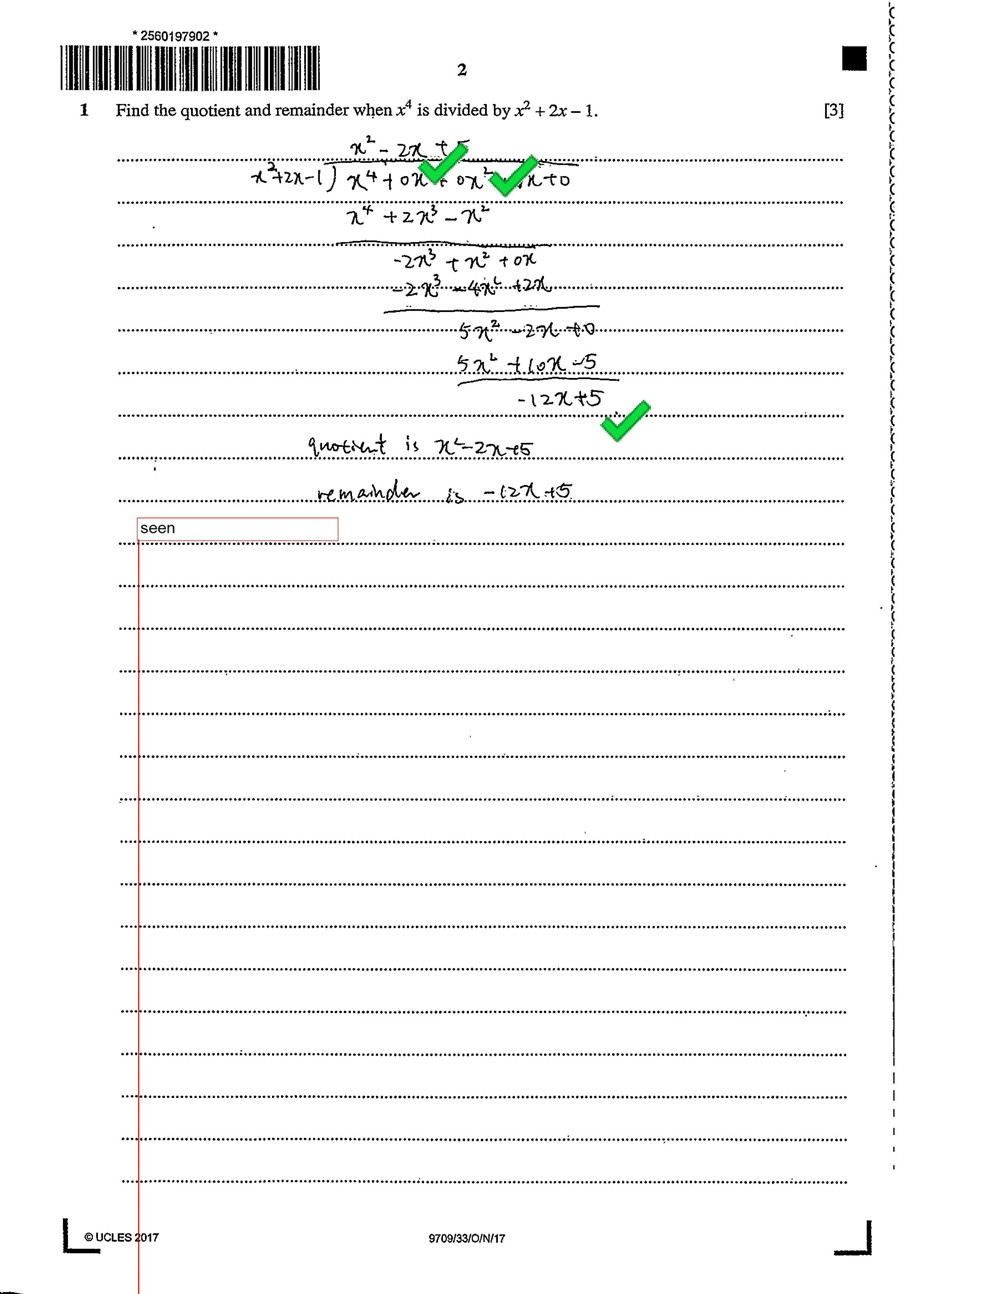 * 2560197902 *
2
1 Find the quotient and remainder when x⁴ is divided by x² + 2x − 1. [3]
x² − 2x + 5
x²+2x−1 ) x⁴ + 0x + 0x² x + 0
x⁴ + 2x³ − x²
−2x³ + x² + 0x
−2x³ − 4x² + 2x
5x² − 2x + 0
5x² + 10x − 5
−12x + 5
quotient is x² − 2x + 5
remainder is −12x + 5
seen
© UCLES 2017
9709/33/O/N/17